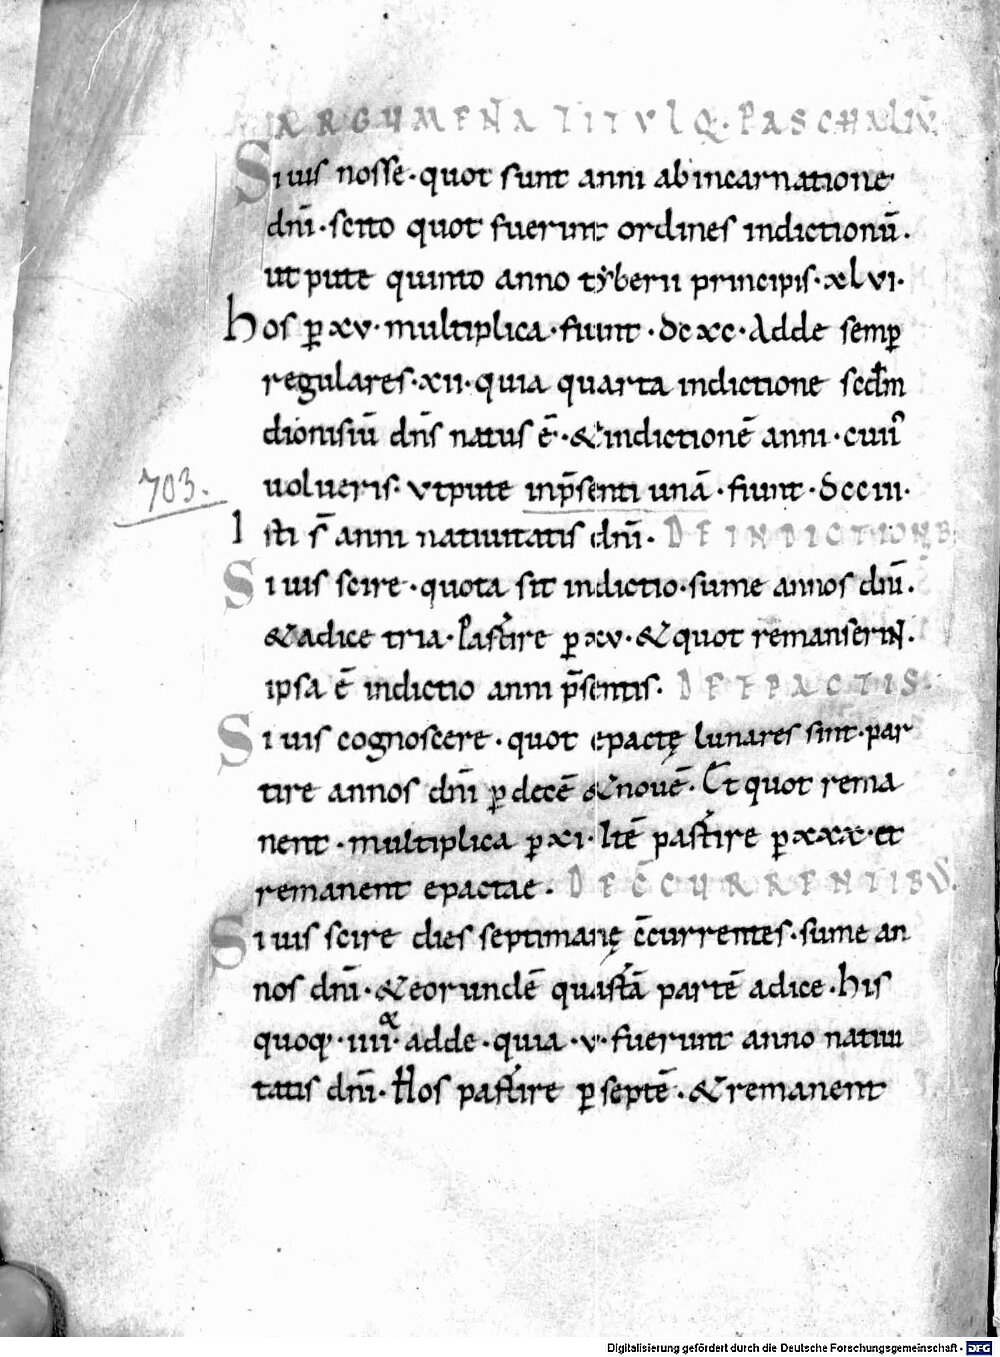 ARGUMEÑA TITULOꝜ· PASCHALIŪ·
Si uis nosse· quot sunt anni abincarnatione
dn̄i· scito quot fuerint ordines indictionū·
ut pute quinto anno tẏberii principis· xlvi·
hos ꝑ xv· multiplica· fiunt· dcxc· Adde semꝑ
regulares· xii· quia quarta indictione scdm̄
dionisiū dn̄s natus ē· & indictionē anni· cuiꝰ
uolueris· utpute inp̄senti unā· fiunt· dcciii·
703·
Isti s̄ anni natiuitatis dn̄i· DE INDICTIONIB;
Si uis scire· quota sit indictio· sume annos dn̄i·
& adice tria· Partire ꝑ xv· & quot remanserint·
ipsa ē indictio anni p̄sentis· DE EPACTIS·
Si uis cognoscere· quot epactę lunares sint· par
tire annos dn̄i ꝑ decē & nouē· Et quot rema
nent· multiplica ꝑ xi· Itē partire ꝑ xxx· et
remanent epactae· DE C̄CURRENTIBUS·
Si uis scire dies septimanę c̄currentes· sume an
nos dn̄i· & eorundē quartā partē adice· his
quoq· iiii· adde· quia· v· fuerunt anno natiui
tatis dn̄i· Hos partire ꝑ septē· & remanent
Digitalisierung gefördert durch die Deutsche Forschungsgemeinschaft - DFG